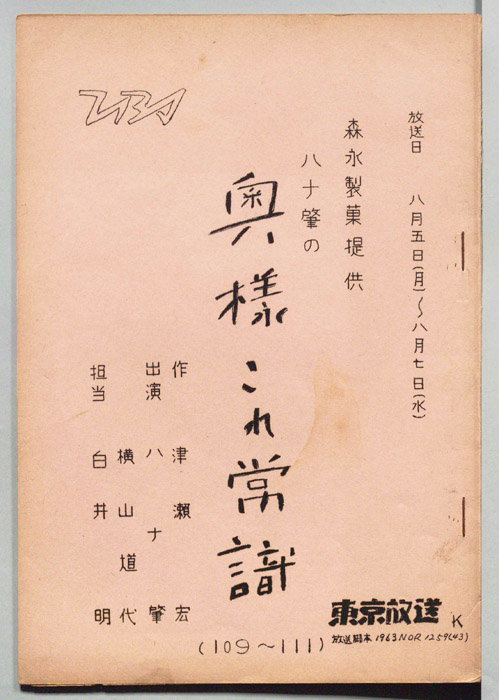 放送日　八月五日(月)～八月七日(水)
森永製菓提供
ハナ肇の
奥様これ常識
作　津瀬　宏
出演　ハナ　肇
横山道代
担当　白井　明
(109～111)
東京放送
K
放送脚本1963NOR1259(43)